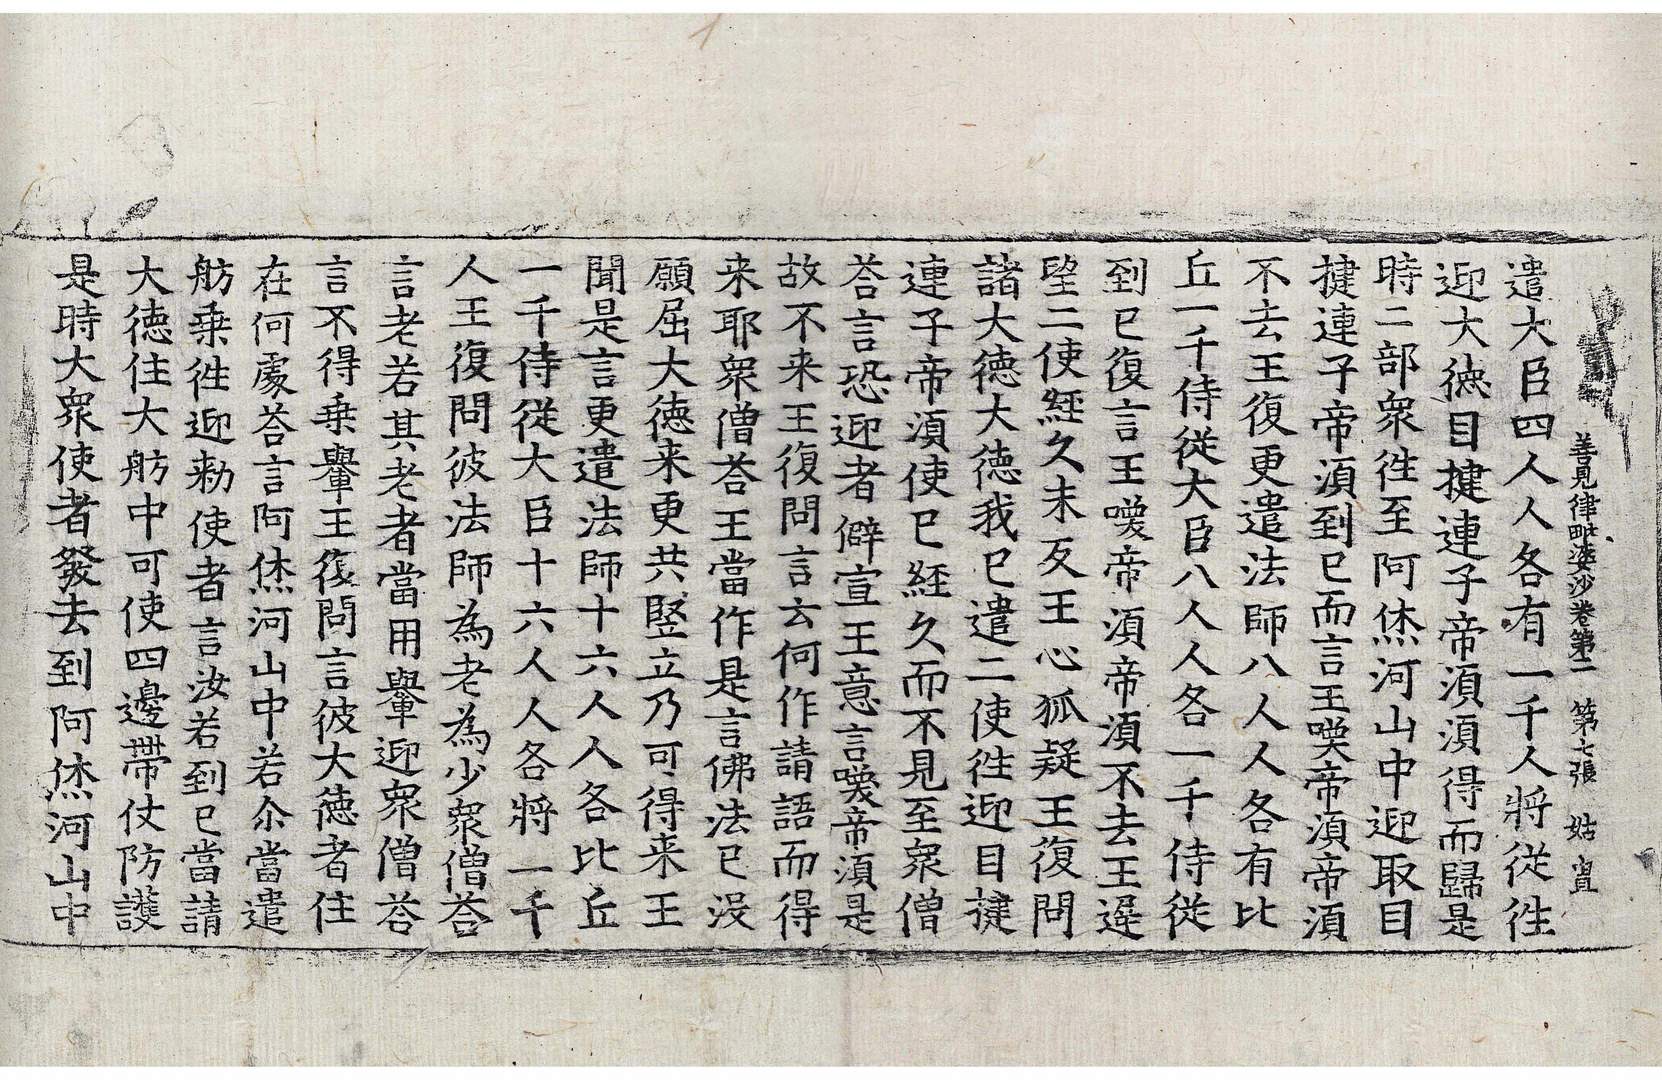 善見律毗婆沙卷第二 第七張 姑
遣大臣四人人各有一千人將從徃
迎大德目揵連子帝須須得而歸是
時二部衆徃至阿烋河山中迎取目
揵連子帝須到已而言王喚帝須帝須
不去王復更遣法師八人人各有比
丘一千侍從大臣八人人各一千侍從
到已復言王喚帝須帝須不去王遲
望二使經久未反王心狐疑王復問
諸大德大德我已遣二使徃迎目揵
連子帝須使已經久而不見至衆僧
荅言恐迎者僻宣王意言喚帝須是
故不来王復問言云何作請語而得
来耶衆僧荅王當作是言佛法已没
願屈大德来更共竪立乃可得来王
聞是言更遣法師十六人人各比丘
一千侍從大臣十六人人各將一千
人王復問彼法師為老為少衆僧荅
言老若其老者當用轝迎衆僧荅
言不得乗轝王復問言彼大德者住
在何處荅言阿烋河山中若尒當遣
舫乗徃迎勑使者言汝若到已當請
大德住大舫中可使四邊帶仗防護
是時大衆使者發去到阿烋河山中